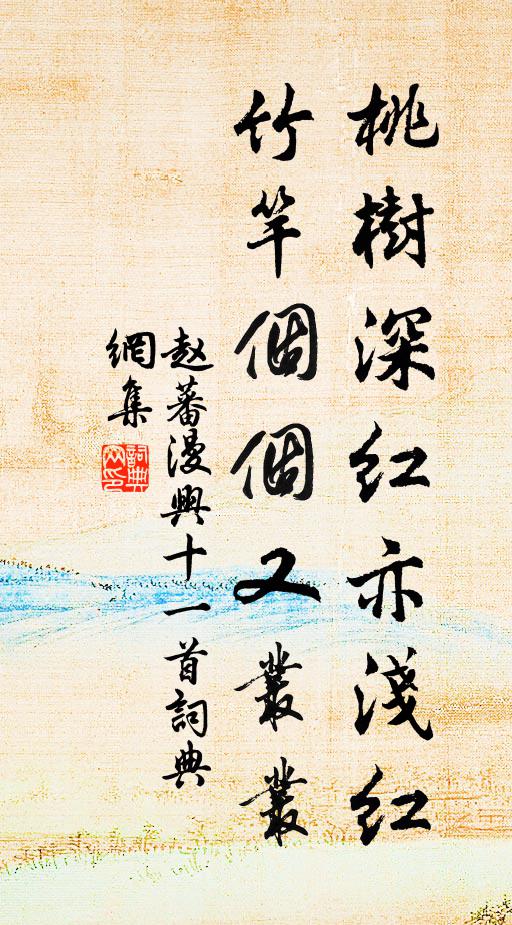 桃樹深红亦淺红
竹竿個個又叢叢
赵蕃漫興十一首詞典
網集
詞典
网印